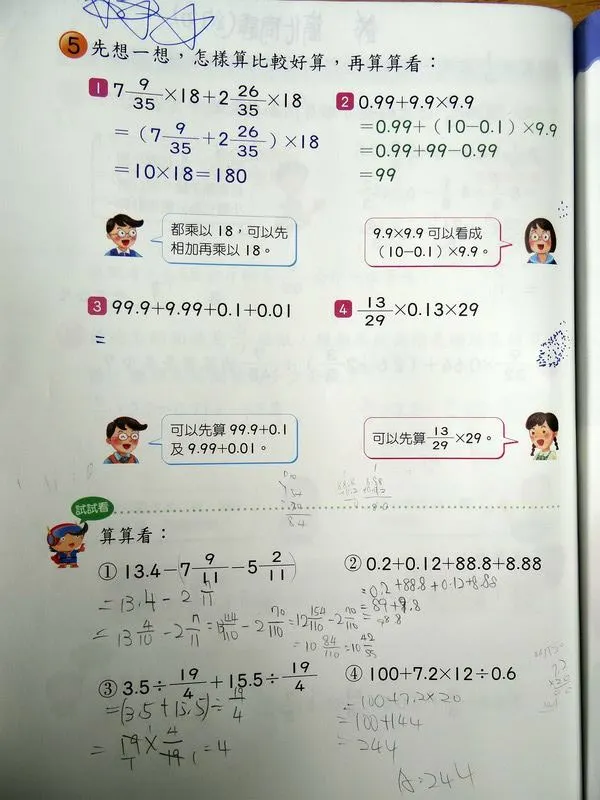 5 先想一想，怎樣算比較好算，再算算看：
1 7 9/35 ×18+2 26/35 ×18
=（7 9/35 +2 26/35）×18
=10×18=180
都乘以 18，可以先
相加再乘以 18。
2 0.99+9.9×9.9
=0.99+（10-0.1）×9.9
=0.99+99-0.99
=99
9.9×9.9 可以看成
（10-0.1）×9.9。
3 99.9+9.99+0.1+0.01
=
可以先算 99.9+0.1
及 9.99+0.01。
4 13/29 ×0.13×29
可以先算 13/29 ×29。
試試看
算算看：
① 13.4-(7 9/11 -5 2/11)
=13.4-2 7/11
=13 4/10 -2 7/11 = 13 44/110 -2 70/110 =12 154/110 -2 70/110
=10 84/110 =10 42/55
② 0.2+0.12+88.8+8.88
=0.2+88.8+0.12+8.88
=89+9.8
=98.8
③ 3.5÷ 19/4 +15.5÷ 19/4
=(3.5+15.5)÷ 19/4
= 19/1 × 4/19 =4
④ 100+7.2×12÷0.6
=100+7.2×20
=100+144
=244
A:244